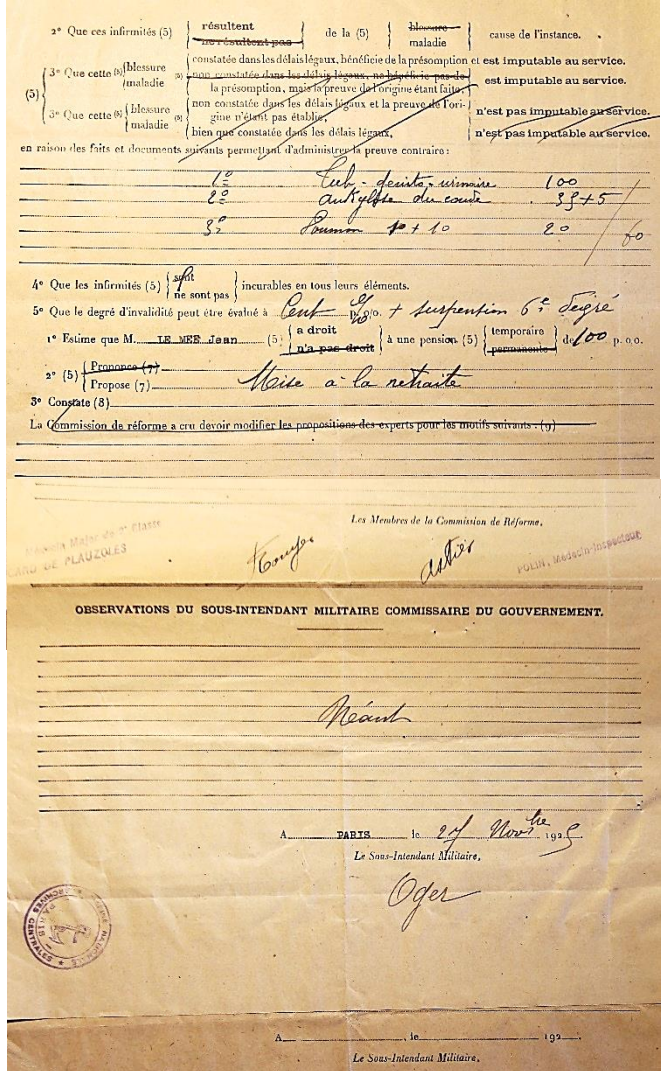 2° Que ces infirmités (5) { résultent / ne résultent pas } de la (5) { blessure / maladie } cause de l'instance.
constatée dans les délais légaux, bénéficie de la présomption et est imputable au service.
3° Que cette (5) { blessure / maladie (5) non constatée dans les délais légaux, ne bénéficie pas de
la présomption, mais la preuve de l'origine étant faite, est imputable au service.
(5)
3° Que cette (5) { blessure / maladie non constatée dans les délais légaux et la preuve de l'ori-
gine n'étant pas établie, n'est pas imputable au service.
bien que constatée dans les délais légaux, n'est pas imputable au service.
en raison des faits et documents suivants permettant d'administrer la preuve contraire :
1° Tub - urinaire 100
2° ankylose du coude 35 + 5
3° Poumon 10 + 10 20 60
4° Que les infirmités (5) { sont / ne sont pas } incurables en tous leurs éléments.
5° Que le degré d'invalidité peut être évalué à Cent p. o/o. + suspention 6e degré
1° Estime que M. LE MEE Jean (5) { a droit / n'a pas droit } à une pension (5) { temporaire / permanente } de 100 p. o.o.
2° (5) { Prononce (7) / Propose (7) Mise à la retraite
3° Constate (8)
La Commission de réforme a cru devoir modifier les propositions des experts pour les motifs suivants : (9)
Les Membres de la Commission de Réforme,
Médecin Major de Classe
DE PLAUZOLES
Astier
POLIN, Médecin-Inspecteur
OBSERVATIONS DU SOUS-INTENDANT MILITAIRE COMMISSAIRE DU GOUVERNEMENT.
Néant
A PARIS le 27 Novbre 1925
Le Sous-Intendant Militaire,
Oger
ARCHIVES CENTRALES
PARIS
A , le 192 .
Le Sous-Intendant Militaire,